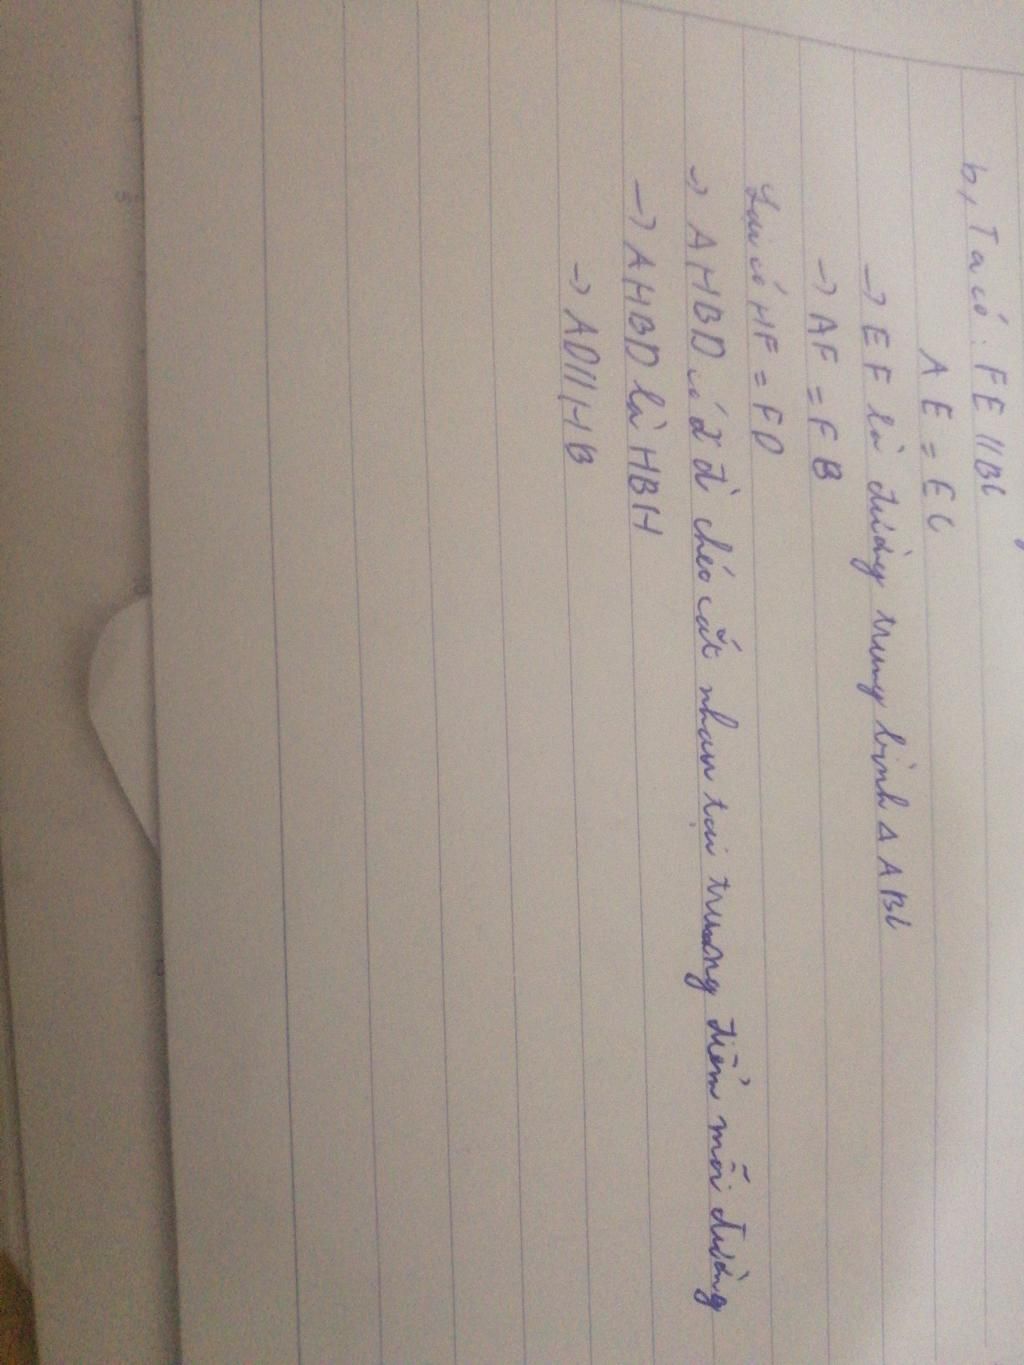 b, Ta có: FE // BC
AE = EC
→ EF là đường trung bình Δ ABC
→ AF = FB
Lại có HF = FD
→ AHBD có 2 đ' chéo cắt nhau tại trung điểm mỗi đường
→ AHBD là HBH
→ AD // HB